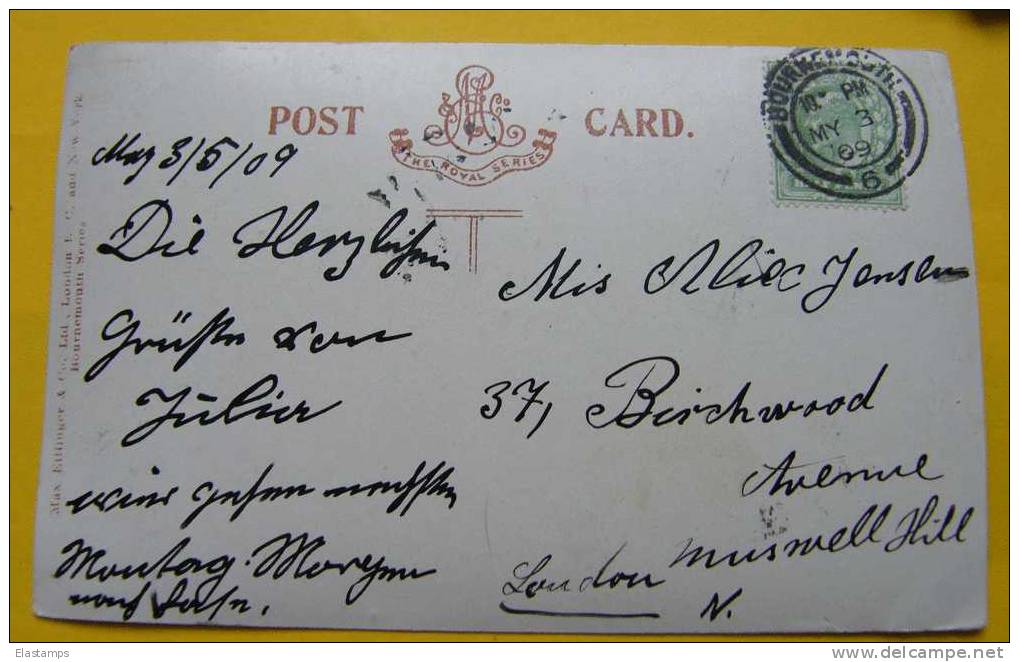 POST CARD.
THE ROYAL SERIES
BOURNEMOUTH
PM
MY 3
09
6
Max Ettlinger & Co., Ltd., London E. C. and New York
Bournemouth Series
May 3/5/09
Die Herzlichen
Grüße von
Julia
wir gehen nechsten
Montag Morgen
nach
Mis Alice Jensen
37, Birchwood
Avenue
Muswell Hill
London N.
Elastamps
www.delcampe.net